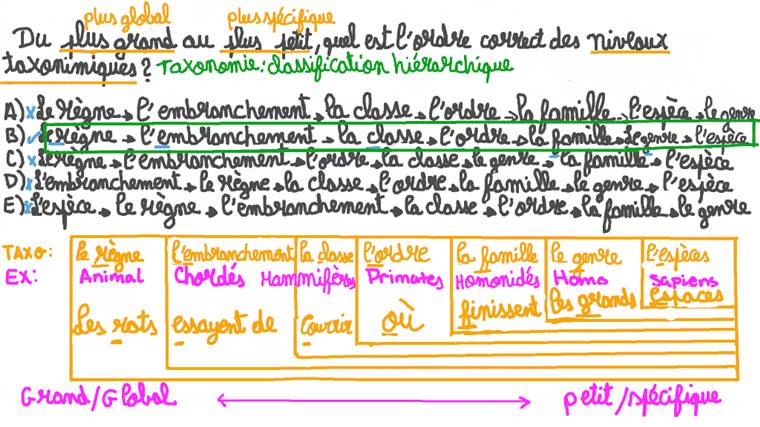 plus global plus spécifique
Du plus grand au plus petit, quel est l'ordre correct des niveaux
taxonimiques? Taxonomie: classification hiérarchique
A) x Le règne → l'embranchement → la classe → l'ordre → la famille → l'espèce → le genre
B) ✓ Le règne → l'embranchement → la classe → l'ordre → la famille → le genre → l'espèce
C) x Le règne → l'embranchement → l'ordre → la classe → le genre → la famille → l'espèce
D) x L'embranchement → le règne → la classe → l'ordre → la famille → le genre → l'espèce
E) x L'espèce → le règne → l'embranchement → la classe → l'ordre → la famille → le genre
TAXO: le règne l'embranchement la classe l'ordre la famille le genre l'espèces
EX: Animal Chordés Mammifères Primates Homonidés Homo sapiens
Les rats essayent de courrir où finissent les grands espaces
Grand/Global ⟷ petit/spécifique